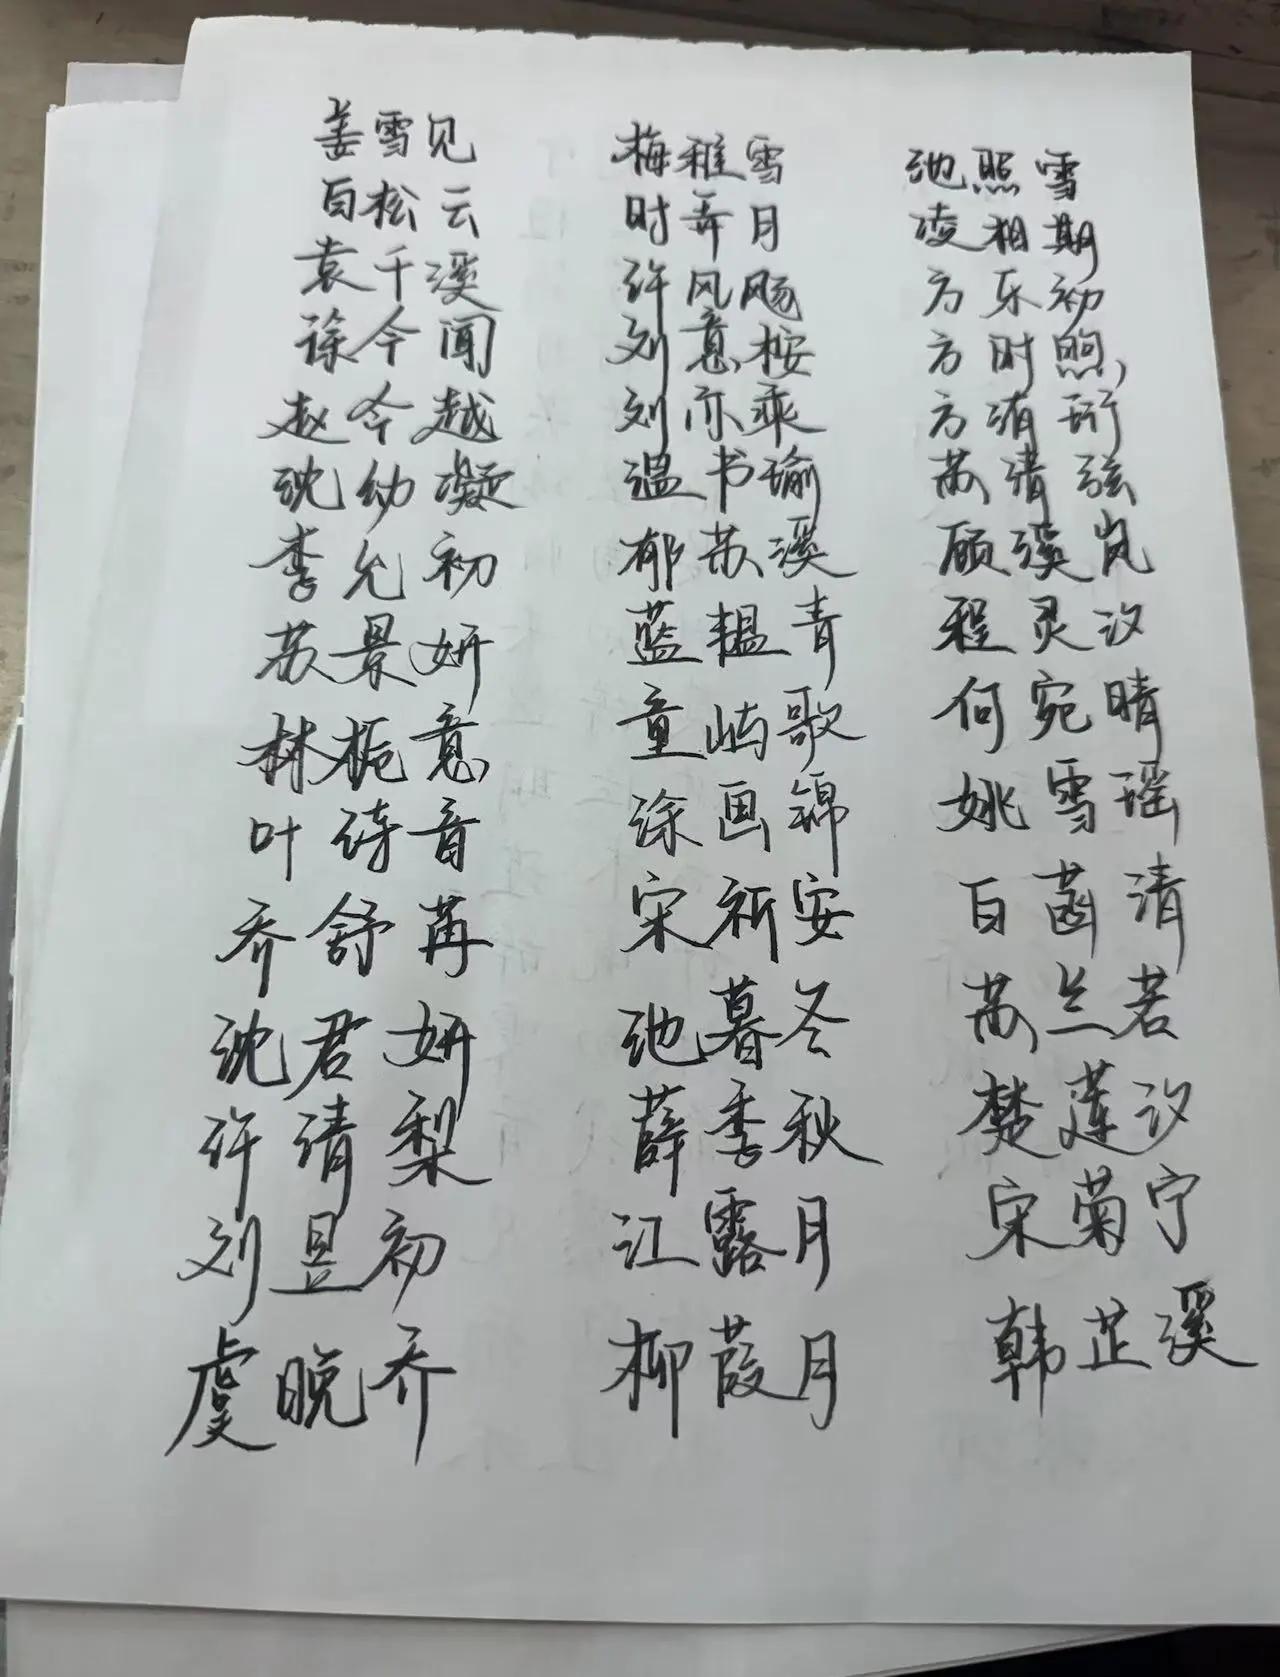 姜雪见
白松云
袁千溪
徐今闻
赵今越
沈幼凝
李允初
苏景妍
林栀意
叶诗音
乔舒苒
沈君妍
许清梨
刘昱初
虞晚乔
梅稚雪
时弄月
许风飏
刘意桉
刘亦乘
温书瑜
郁苏溪
蓝韫青
童屿歌
涂画锦
宋祈安
池暮冬
薛季秋
江露月
柳葭月
池照雪
凌相期
方乐初
方时煦
方清珩
苏清弦
顾溪岚
程灵汐
何宛晴
姚雪瑶
白菡清
苏兰若
楚莲汐
宋菊宁
韩芷溪